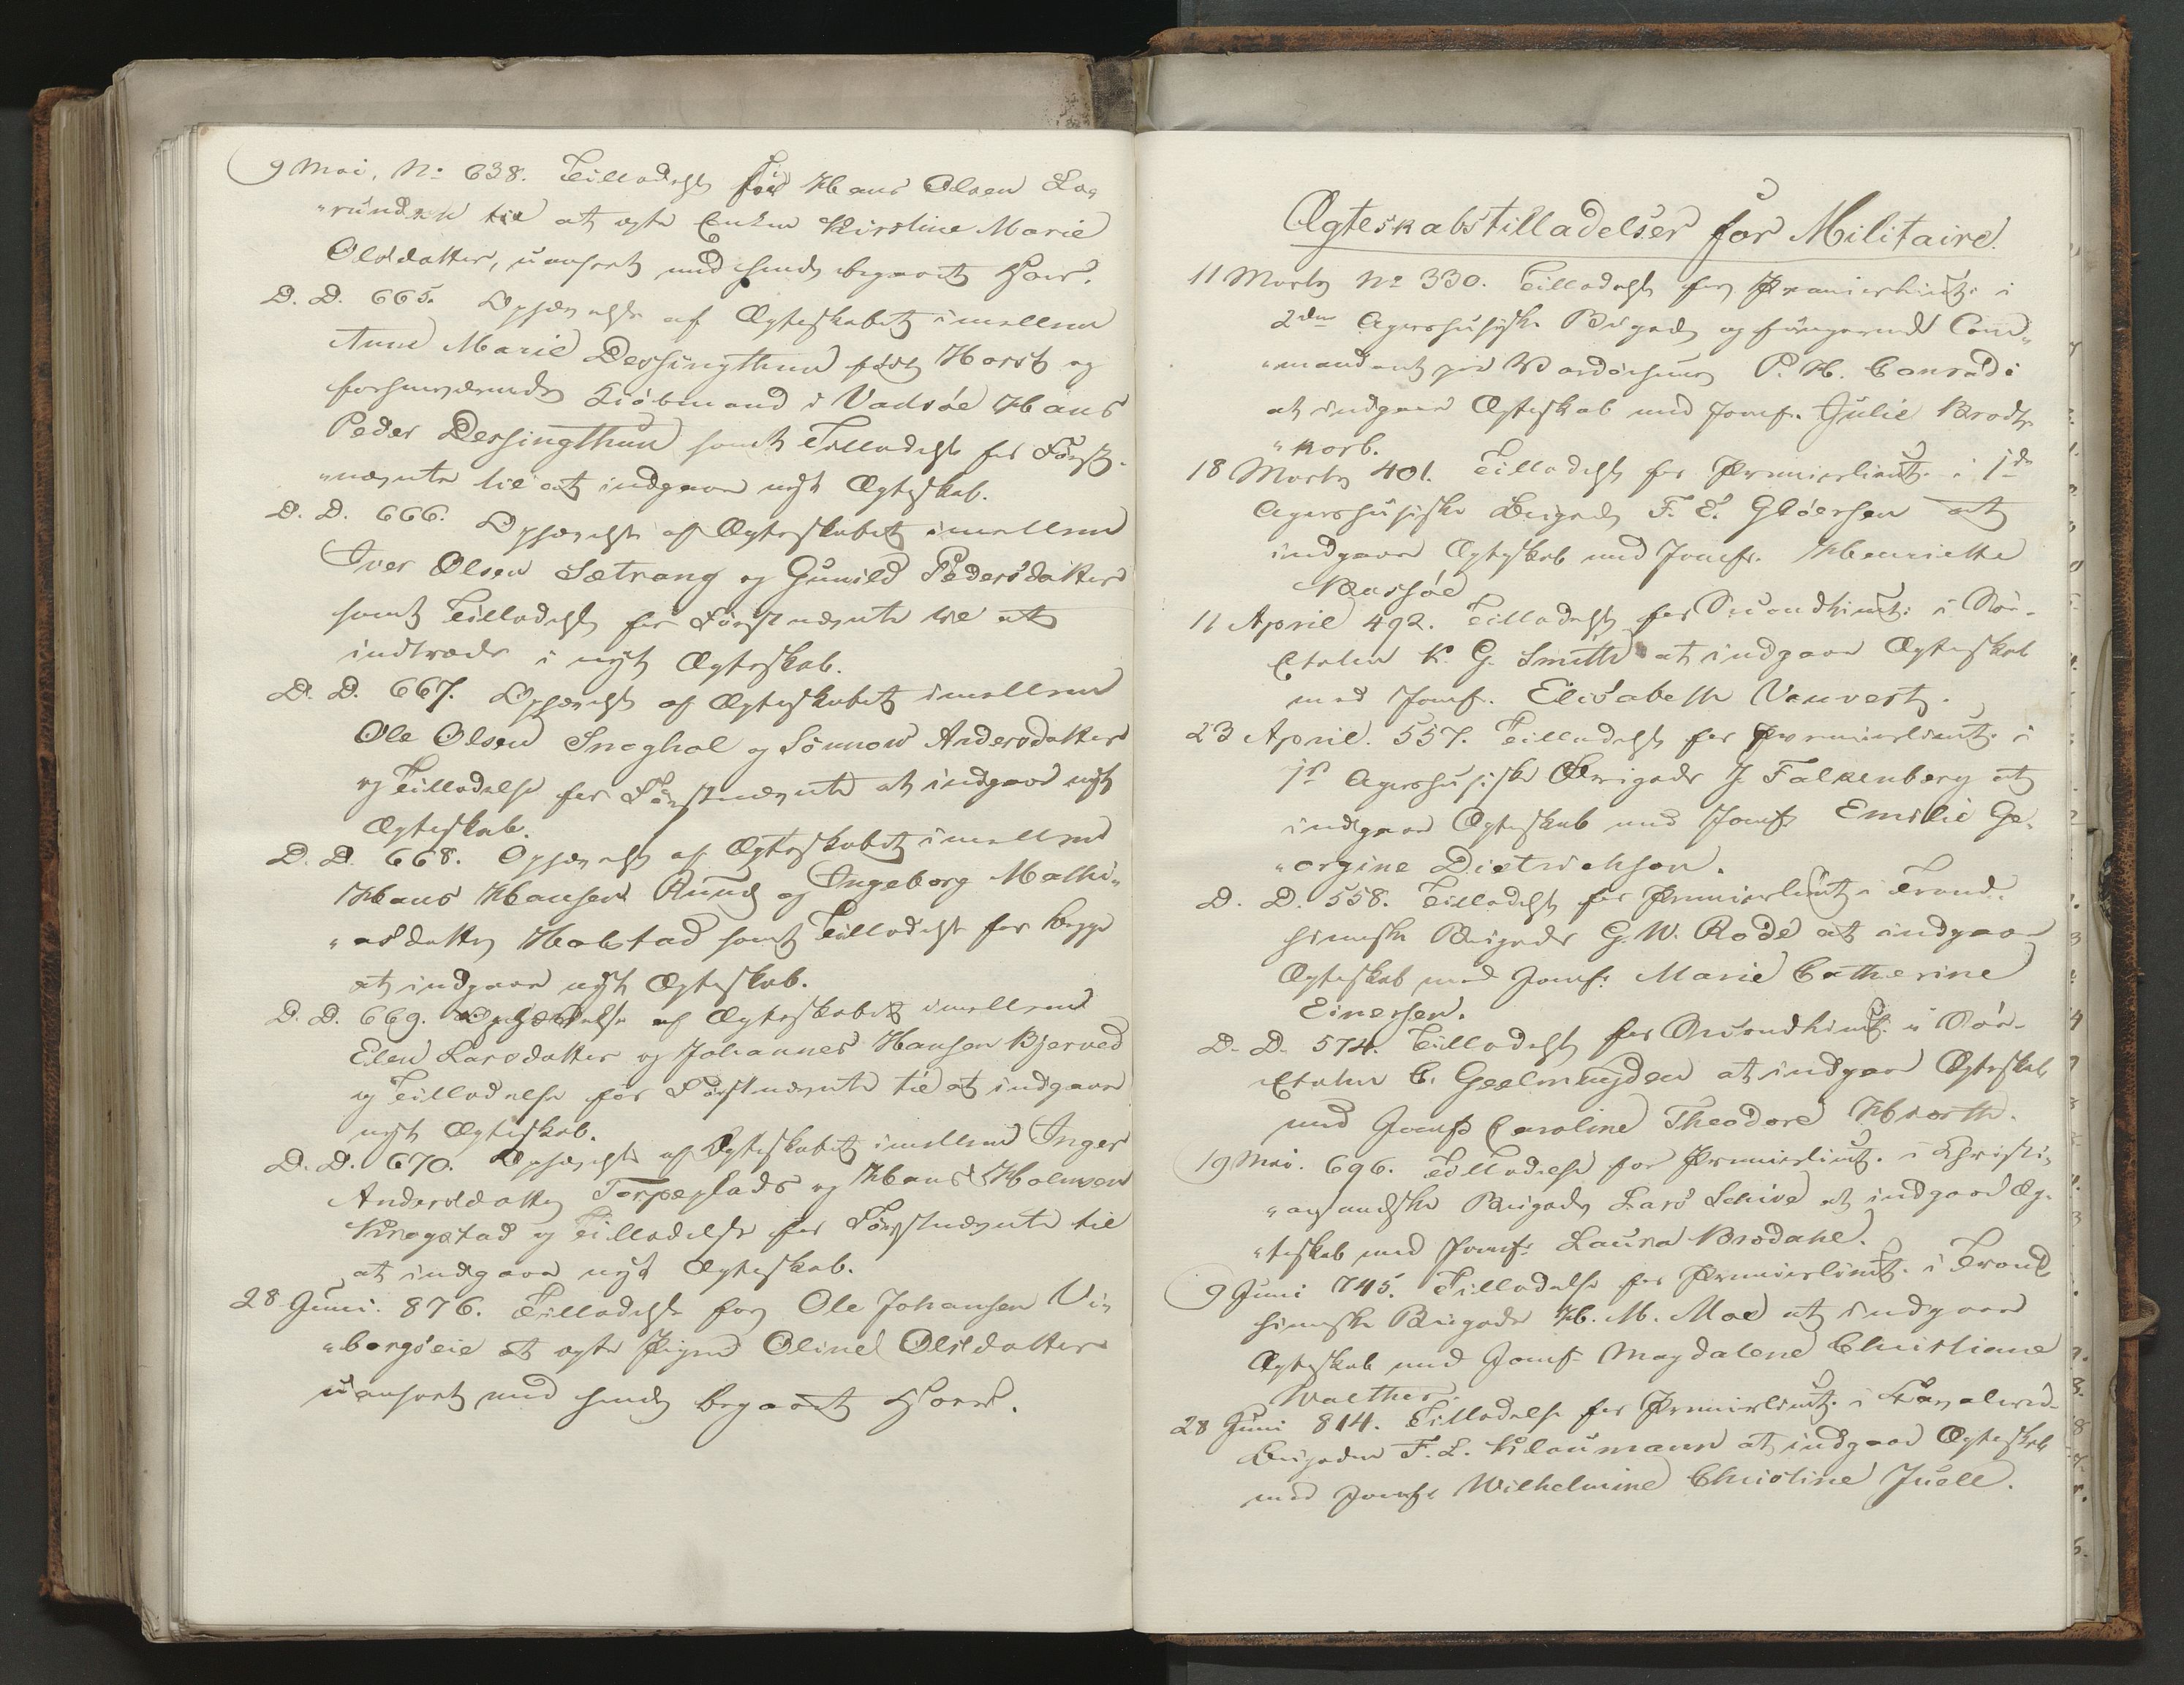 9 Mai, No 638. Tilladelse for Hans Olsen Lo„
„runden til at ægte Enken Kirstine Marie
Olsdatter, uanseet med hende begaaet Hoer.
D. D. 665. Ophævelse af Ægteskabet imellem
Anne Marie Dessingthun født Horst og
forhenværende Kiöbmand i Vadsöe Hans
Peder Dessingthun samt Tilladelse for Först„
„nævnte til at indgaae nyt Ægteskab.
D. D. 666. Ophævelse af Ægteskabet imellem
Iver Olsen Sætrang og Gunild Pedersdatter
samt Tilladelse for Förstnævnte til at
indtræde i nyt Ægteskab.
D. D. 667. Ophævelse af Ægteskabet imellem
Ole Olsen Sneghol og Sönnow Andersdatter
og Tilladelse for Förstnævnte at indgaae nyt
Ægteskab.
D. D. 668. Ophævelse af Ægteskabet imellem
Hans Hansen Rund og Ingeborg Mathi„
„asdatter Holstad samt Tilladelse for begge
at indgaae nyt Ægteskab.
D. D. 669. Ophævelse af Ægteskabet imellem
Elen Larsdatter og Johannes Hansen Bjerved
og Tilladelse for Förstnævnte til at indgaae
nyt Ægteskab.
D. D. 670. Ophævelse af Ægteskabet imellem Inger
Andersdatter Torpeplads og Hans Holmsen
Krogstad og Tilladelse for Förstnævnte til
at indgaae nyt Ægteskab.
28 Juni. 876. Tilladelse for Ole Johansen Vi„
„borgöeie at ægte Pigen Oline Olsdatter
uanseet med hende begaaet Hoer.
Ægteskabstilladelser for Militaire.
11 Marts No 330. Tilladelse for Premierlieut. i
2den Agershusiske Brigade og fungerende Com„
„mandant paa Vardöehuus P. H. Conradi
at indgaae Ægteskab med Jomf. Julie Brodt„
„korb.
18 Marts 401. Tilladelse for Premierlieut. i 1ste
Agershusiske Brigade F. E. Glöersen at
indgaae Ægteskab med Jomfr. Henriette
11 April 492. Tilladelse for Secondlieut. i Söe„
Etaten K. G. Smith at indgaae Ægteskab
med Jomf. Elisabeth Vauvert.
23 April. 557. Tilladelse for Premierlieut. i
1ste Agershusiske Brigade J. Falkenberg at
indgaae Ægteskab med Jomf. Emilie Ge„
„orgine Dietrichson.
D. D. 558. Tilladelse for Premierlieut. i Trond„
hiemske Brigade G. W. Rode at indgaae
Ægteskab med Jomf. Marie Catherine
Einersen.
D. D. 574. Tilladelse for Secondlieut. i Söe„
Etaten C. Geelmuyden at indgaae Ægteskab
med Jomf. Caroline Theodore Hiorth.
19 Mai. 696. Tilladelse for Premierlieut. i Christi„
„ansandske Brigade Lars Schive at indgaae Æg„
„teskab med Jomf. Laura Brodahl.
9 Juni 745. Tilladelse for Premierlieut. i Trond„
hiemske Brigade H. M. Moe at indgaae
Ægteskab med Jomf. Magdalene Christiane
Walther.
28 Juni 814. Tilladelse for Premierlieut. i Cavalerie„
Brigaden F. L. Klaumann at indgaae Ægteskab
med Jomf. Wilhelmine Christine Juell.